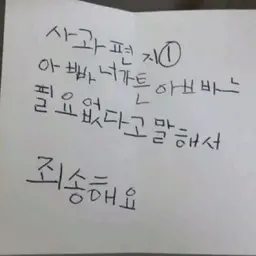 사과편지①
아빠너가튼아빠는
필요없다고말해서
죄송해요